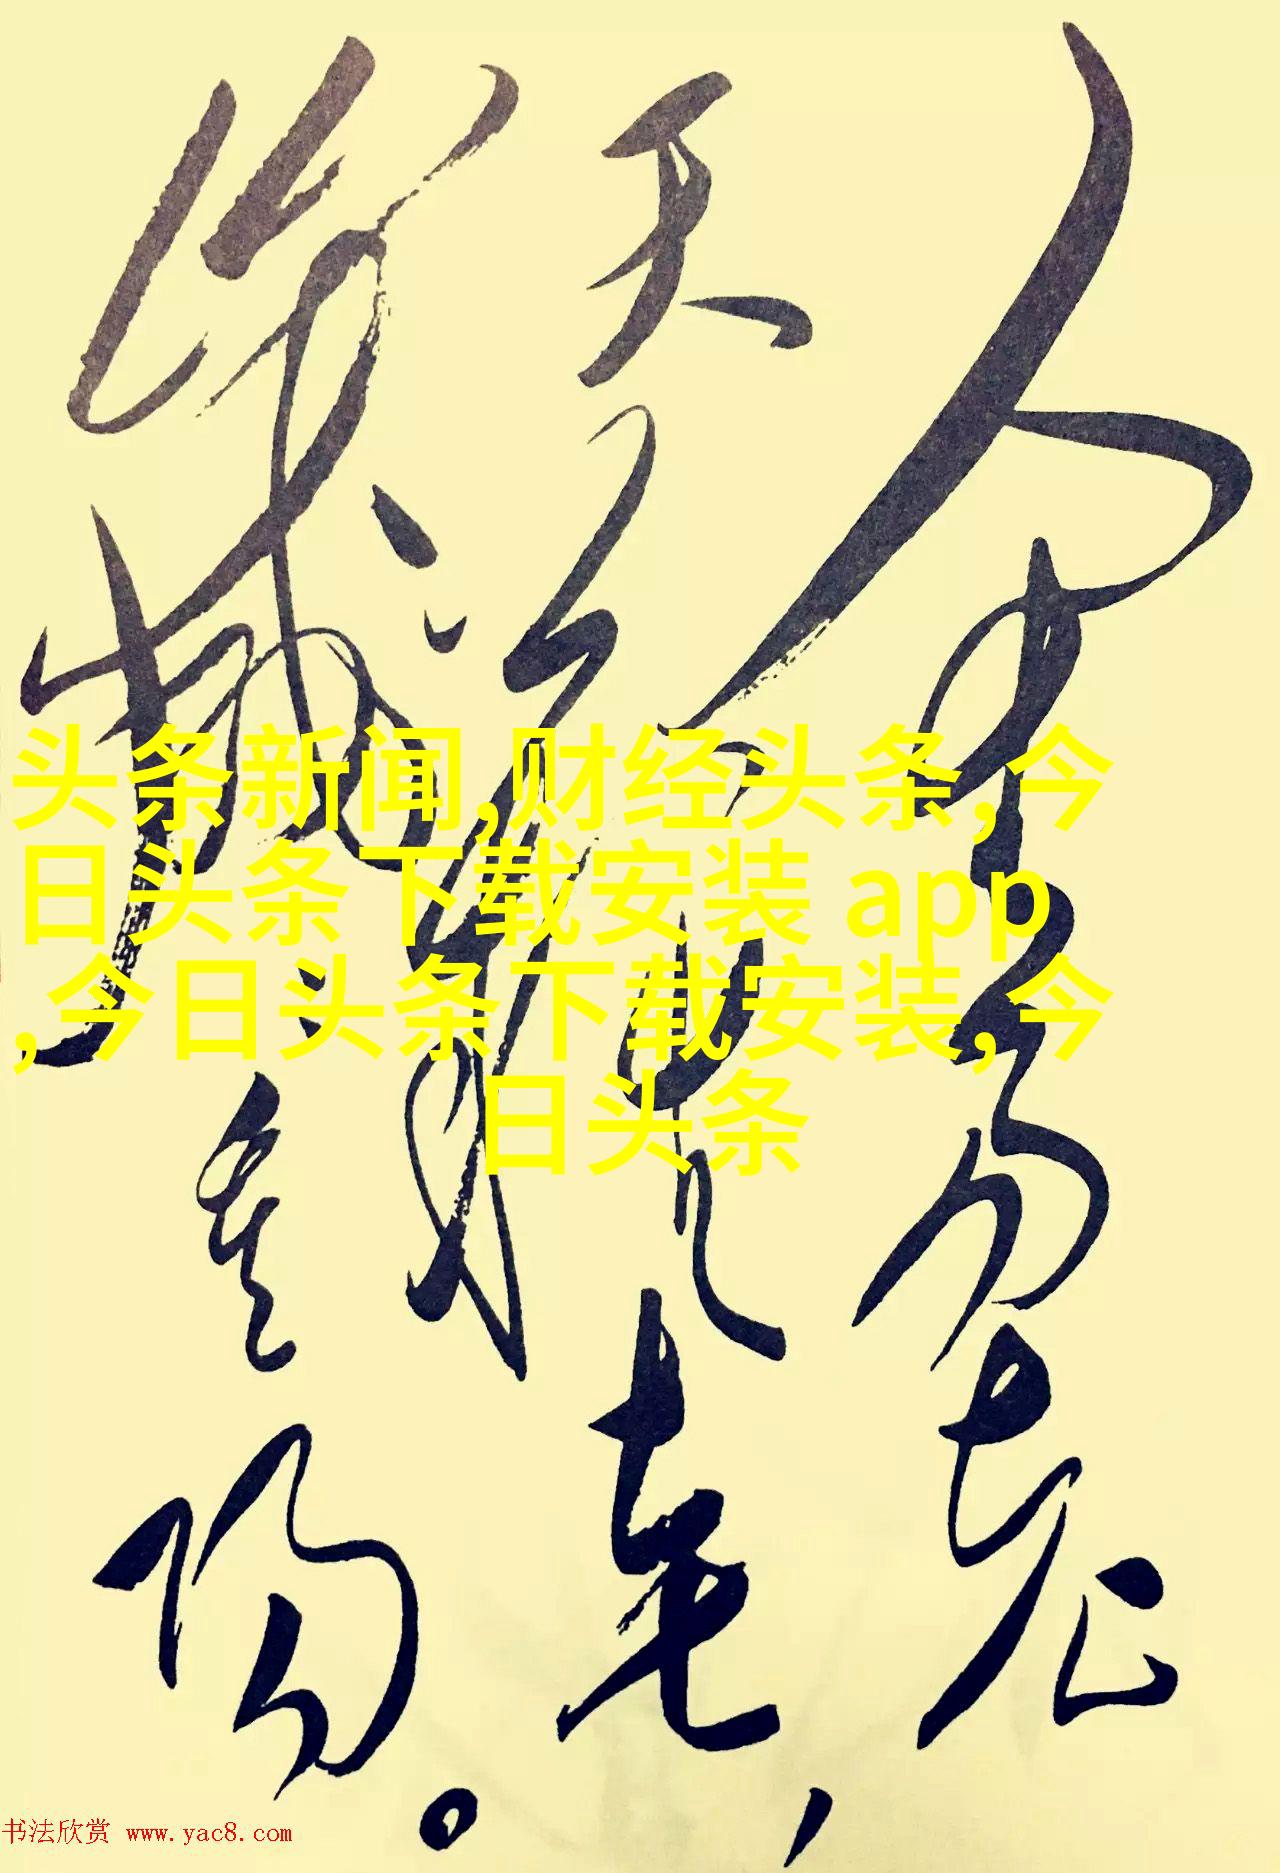 人生易老
天难老，
岁岁重阳。
头条新闻,财经头条,今
日头条下载安装 app
,今日头条下载安装,今
日头条
书法欣赏 www.yac8.com